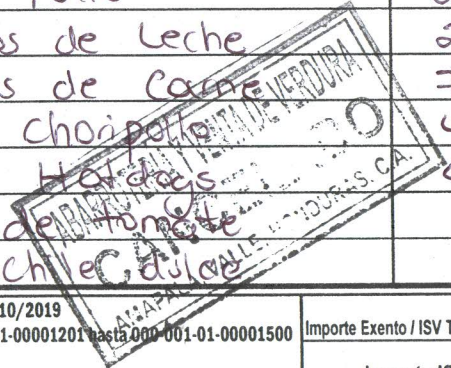 os de Leche
s de Carne
Choripollo
Hotdogs
de tomate
chile dulce
ABARROTERIA Y VENTA DE VERDURA
CANCELADO
AMAPALA, VALLE, HONDURAS, C.A.
10/2019
1-00001201 hasta 000-001-01-00001500
Importe Exento / ISV T